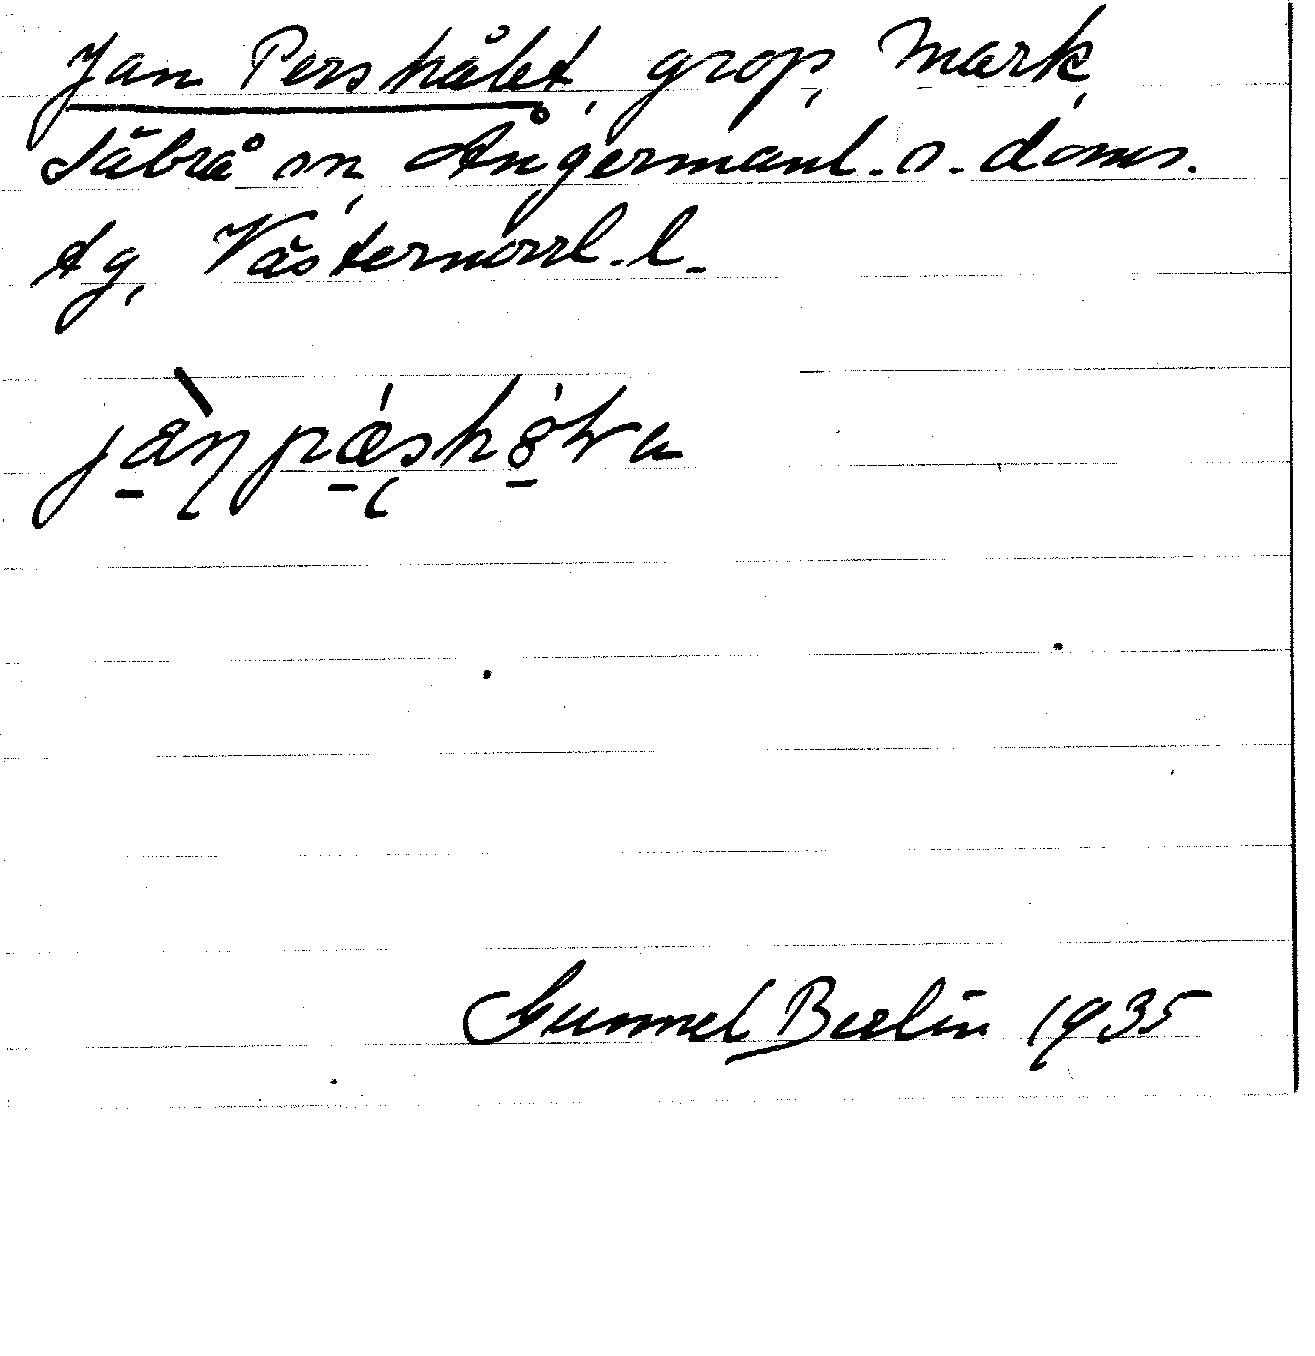 Jan Pershålet, grop, Mark,
Säbrå sn, Ångermanl. s. doms.
tg, Västernorrl. l.
Gunnel Berlin 1935